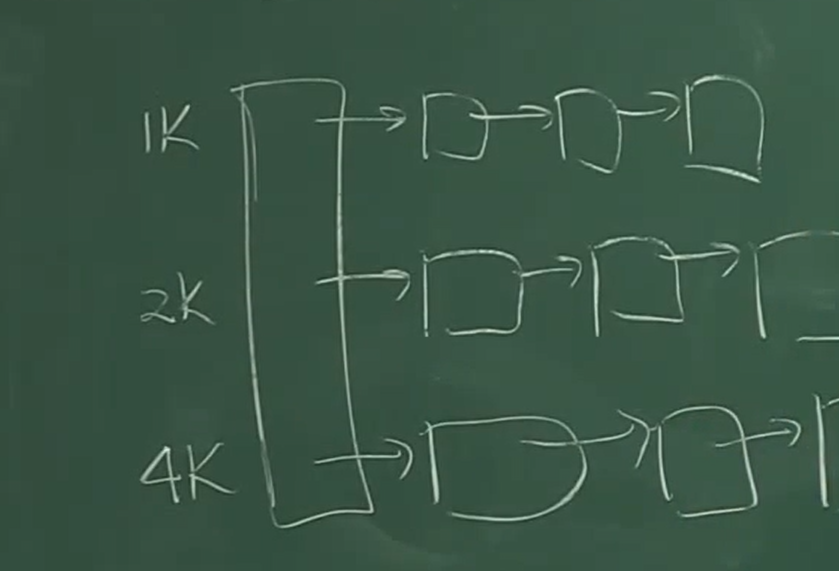 1K
2K
4K